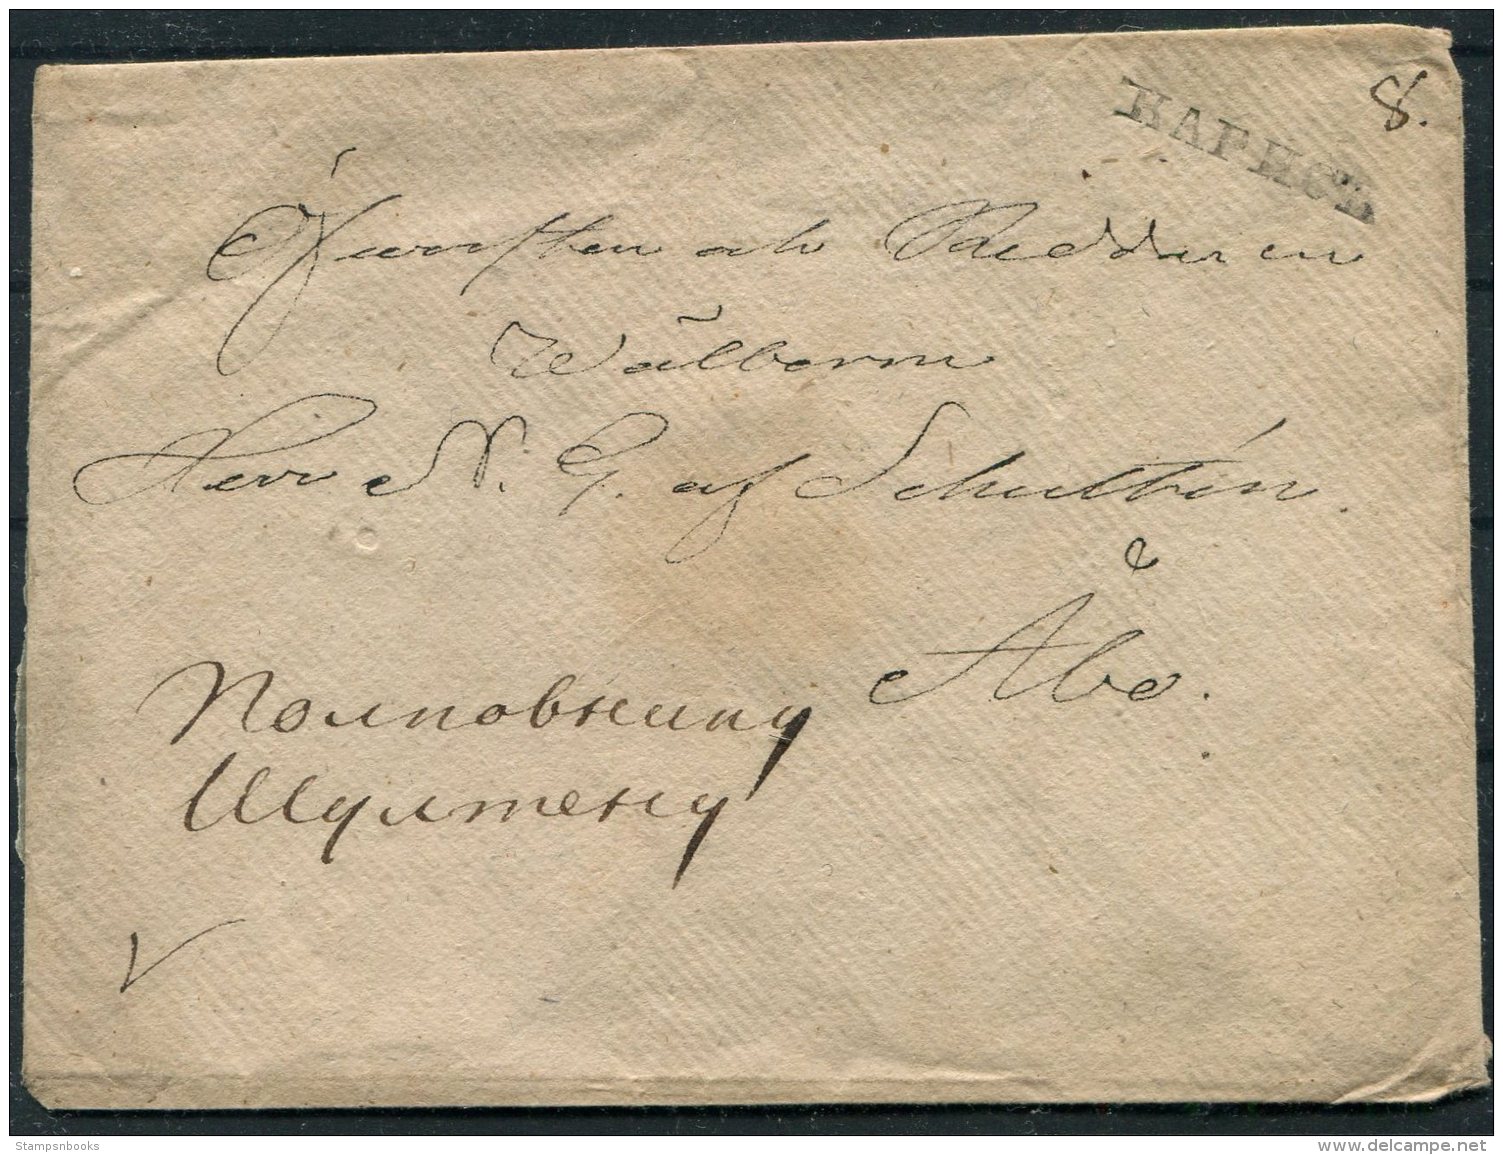 КАРИСЪ
8.
Öfversten och Riddaren
Wälborne
Herr N. G. af Schultén
Åbo.
Полковнику
Шултену
Stampsnbooks
www.delcampe.net